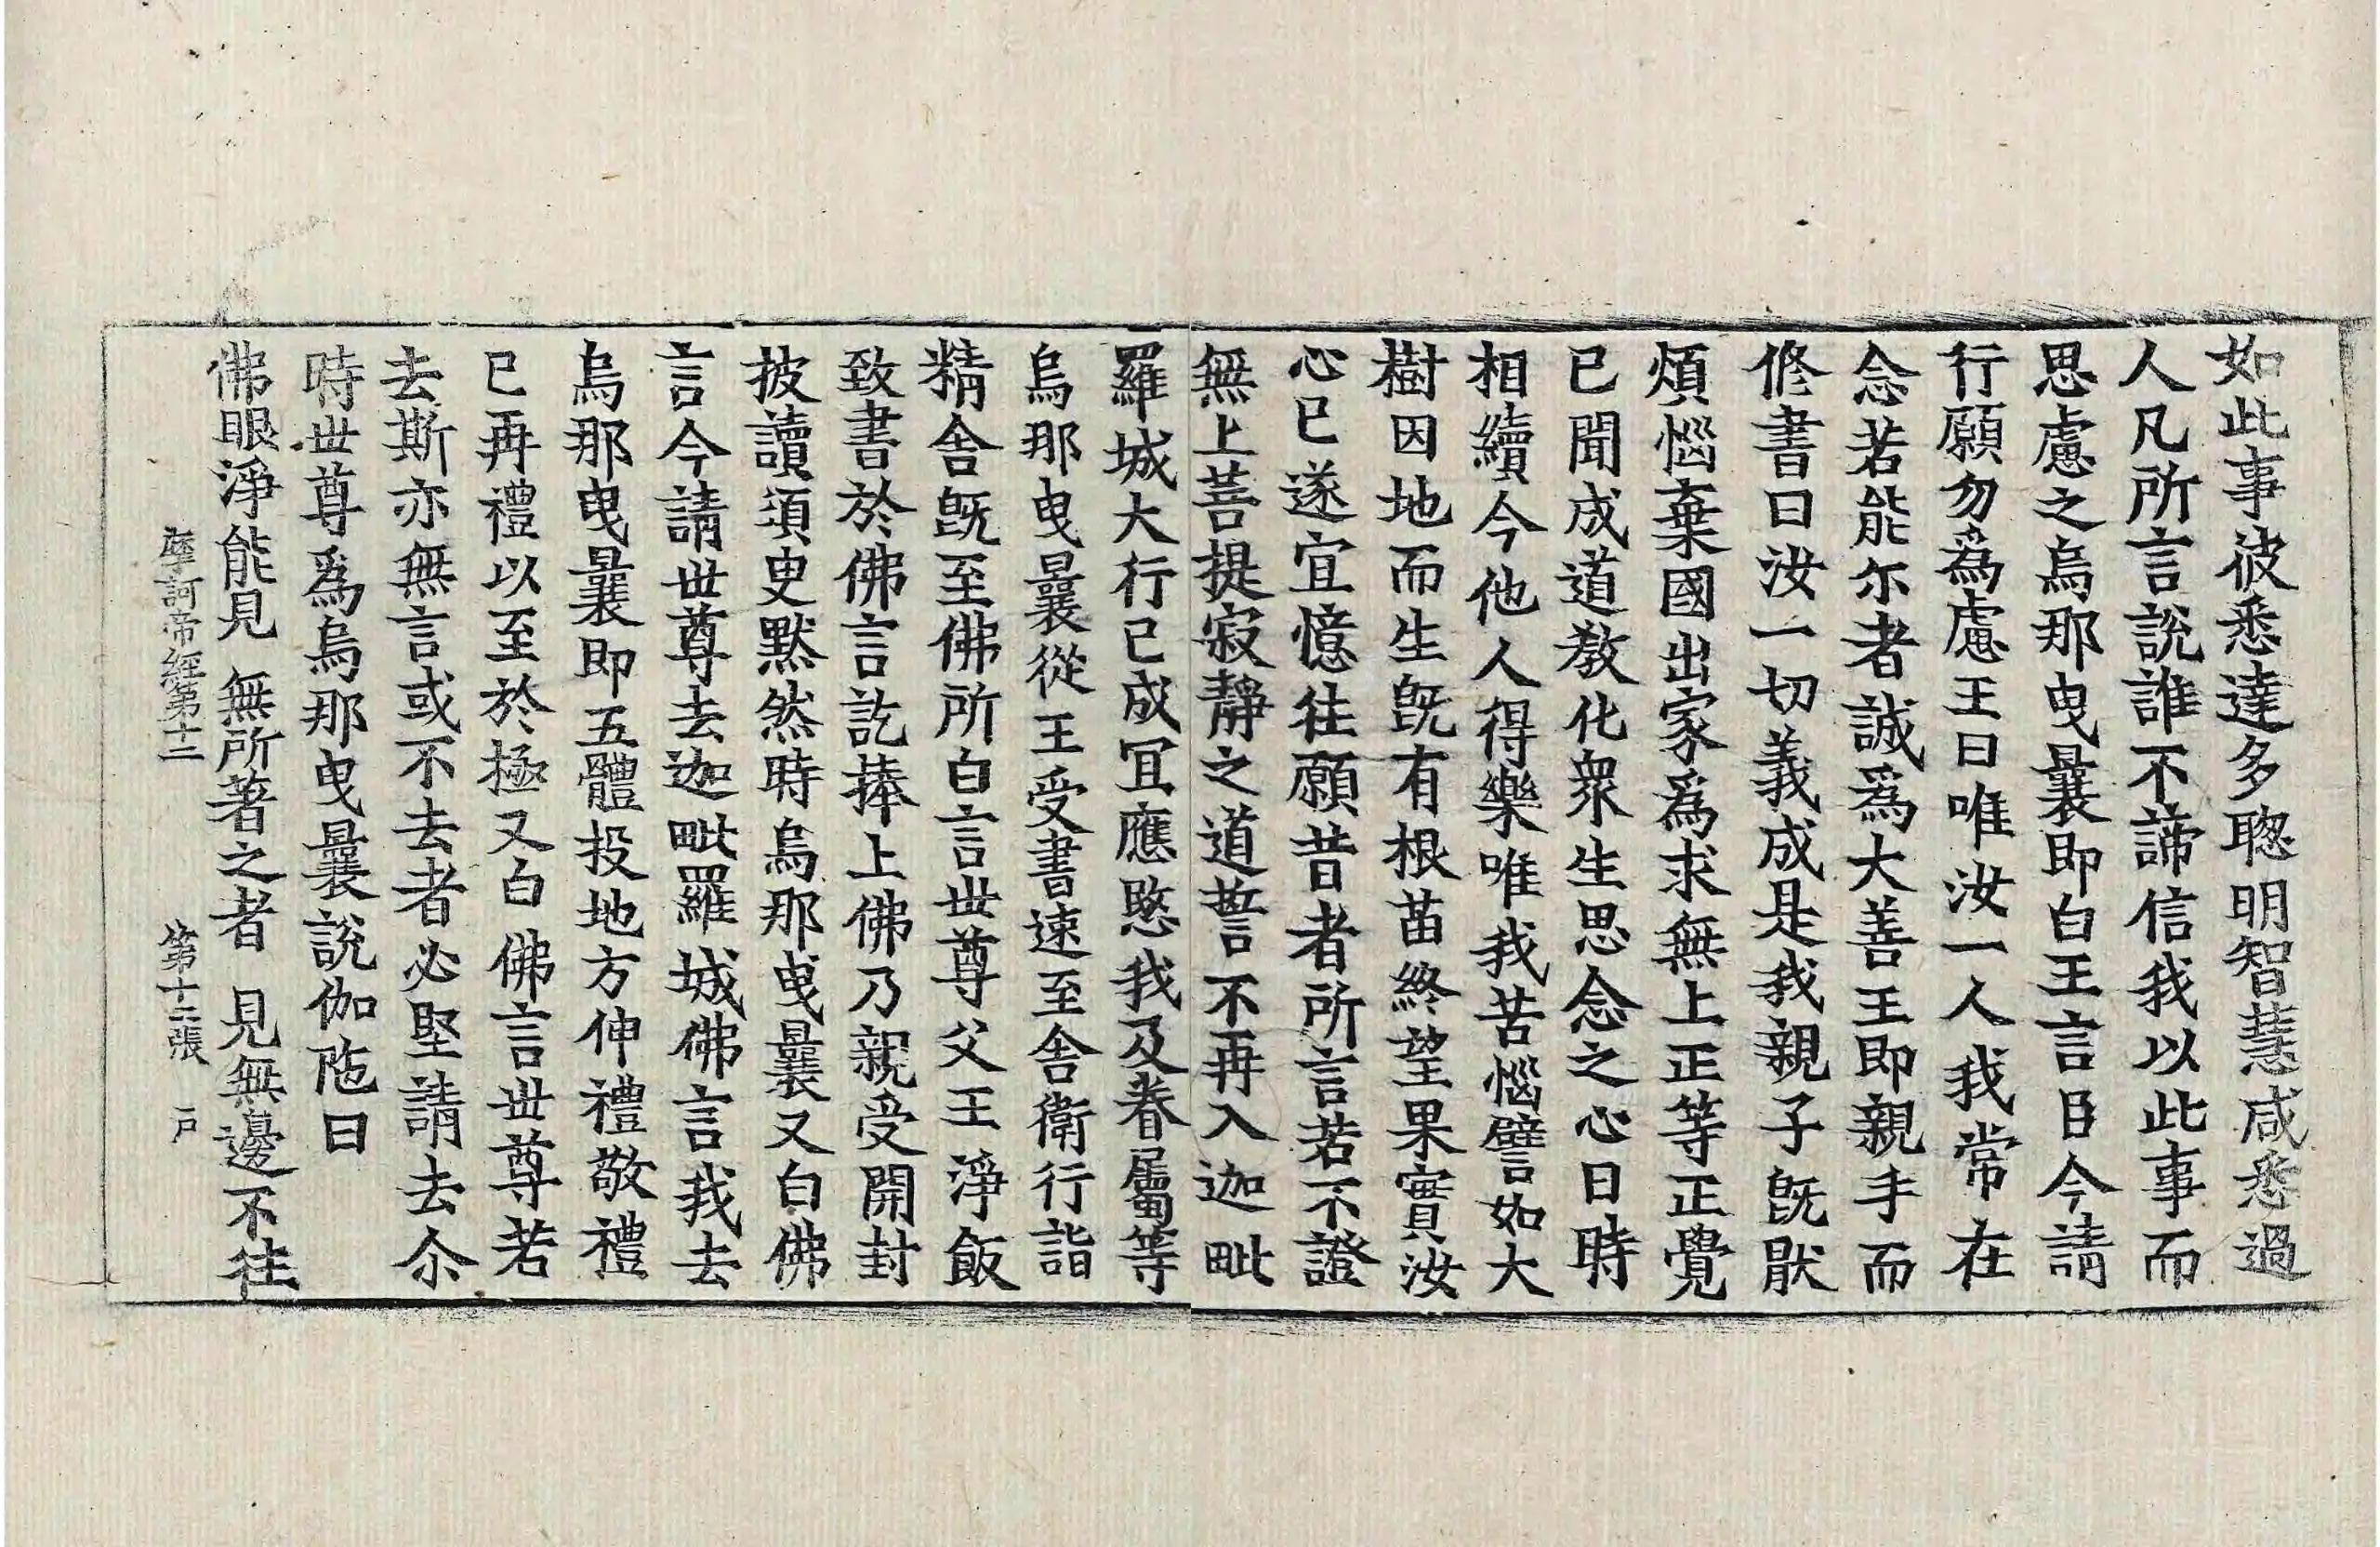 如此事彼悉達多聦明智慧咸悉過
人凡所言說誰不諦信我以此事而
思慮之烏那曳曩即白王言日今請
行願勿爲慮王曰唯汝一人我常在
念若能尒者誠爲大善王即親手而
修書曰汝一切義成是我親子旣猒
煩惱棄國出家爲求無上正等正覺
已聞成道教化衆生思念之心日時
相續今他人得樂唯我苦惱譬如大
樹因地而生旣有根苗終望果實汝
心已遂宜憶往願昔者所言若不證
無上菩提寂靜之道誓不再入迦毗
羅城大行已成冝應愍我及眷屬等
烏那曳曩從王受書速至舎衛行詣
精舎旣至佛所白言世尊父王淨飯
致書於佛言訖捧上佛乃親受開封
披讀須臾黙然時烏那曳曩又白佛
言今請世尊去迦毗羅城佛言我去
烏那曳曩即五體投地方伸禮敬禮
已再禮以至於極又白佛言世尊若
去斯亦無言或不去者必堅請去尒
時世尊爲烏那曳曩說伽陁曰
佛眼淨能見 無所著之者 見無邊不往
摩訶帝經第十二 第十二張 户